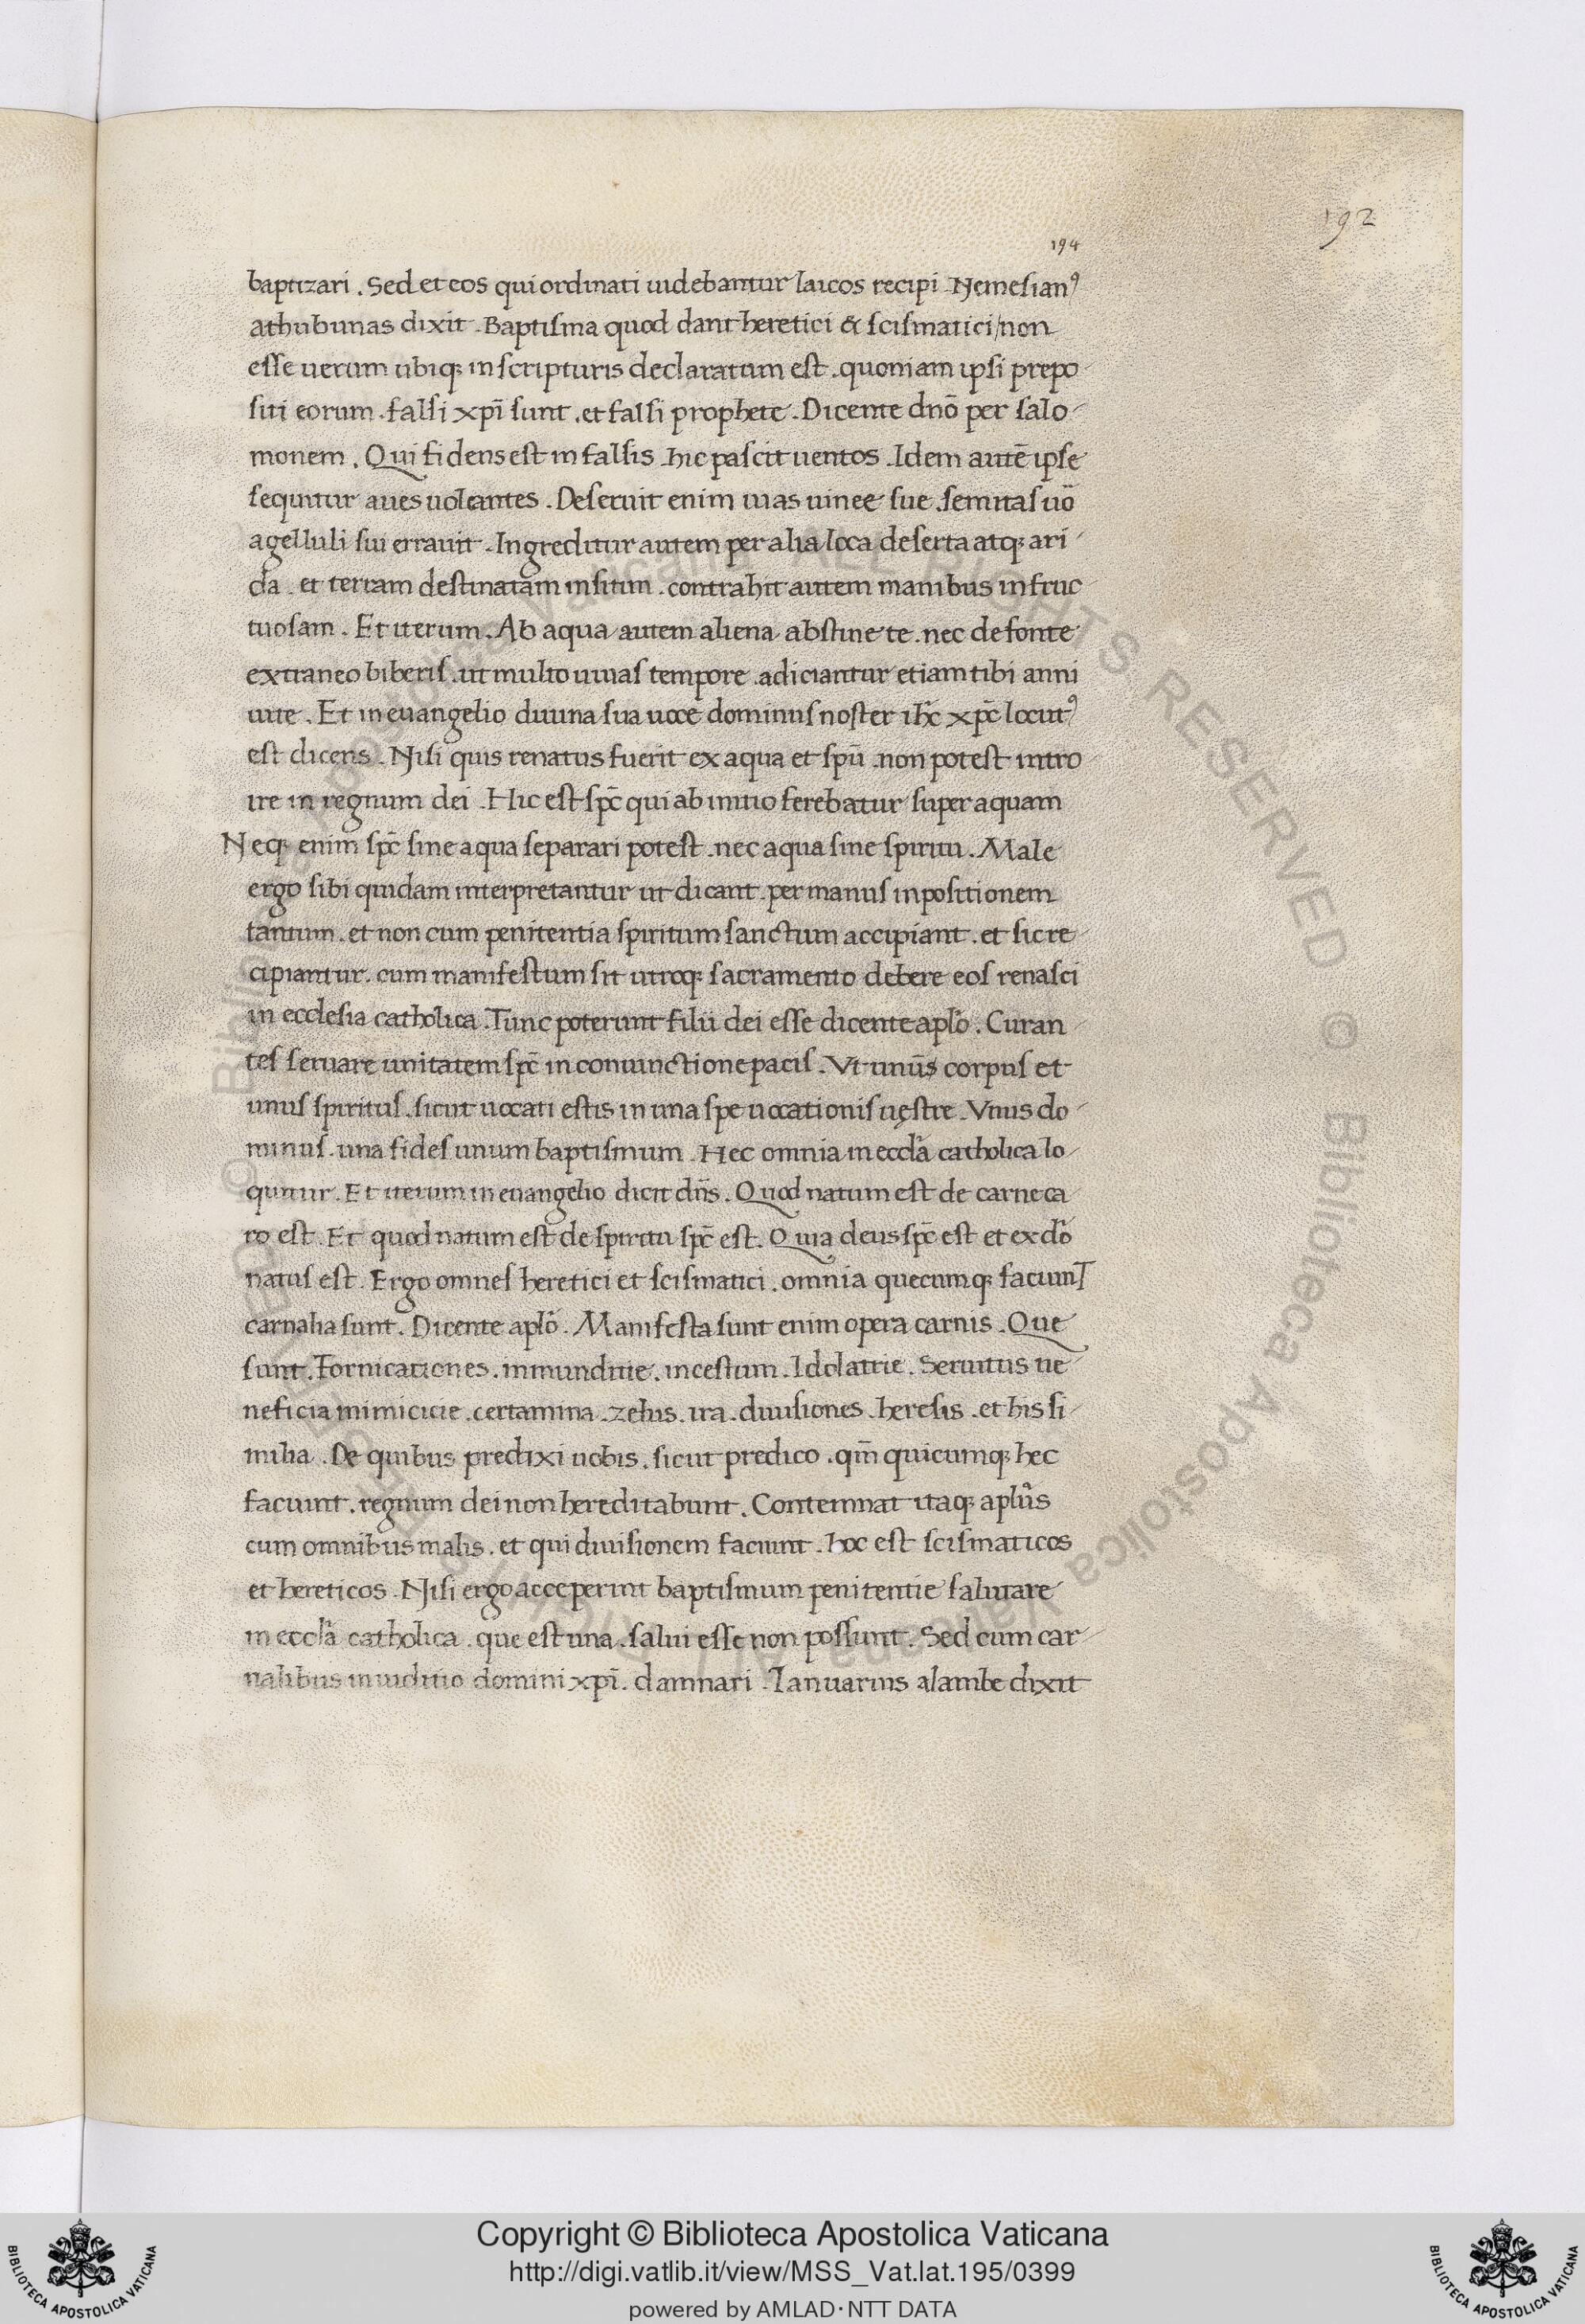 192
194
baptizari . Sed et eos qui ordinati uidebantur laicos recipi . Nemesianꝰ
athubunas dixit . Baptisma quod dant heretici & scismatici / non
esse uerum ubiqꝫ in scripturis declaratum est . quoniam ipsi prepo-
siti eorum . falsi xpī sunt . et falsi prophete . Dicente dnō per salo-
monem . Qui fidens est in falsis hic pascit uentos . Idem autē ipse
sequitur aues uolantes . Deseruit enim uias uinee sue . semitas uō
agelluli sui errauit . Ingreditur autem per alia loca deserta atqꝫ ari-
da . et terram destinatam in sitim . contrahit autem manibus infruc-
tuosam . Et iterum . Ab aqua autem aliena abstine te . nec de fonte
extraneo biberis . ut multo uiuas tempore . adiciantur etiam tibi anni
uite . Et in euangelio diuina sua uoce dominus noster ihc̄ xpc̄ locutꝰ
est dicens . Nisi quis renatus fuerit ex aqua et spū . non potest intro-
ire in regnum dei . Hic est spc̄ qui ab initio ferebatur super aquam
Neqꝫ enim spc̄ sine aqua separari potest . nec aqua sine spiritu . Male
ergo sibi quidam interpretantur ut dicant . per manus inpositionem
tantum . et non cum penitentia spiritum sanctum accipiant . et sic re-
cipiantur . cum manifestum sit utroqꝫ sacramento debere eos renasci
in ecclesia catholica . Tunc poterunt filii dei esse dicente aplō . Curan-
tes seruare unitatem spc̄ in coniunctione pacis . Vt unūs corpus et
unus spiritus . sicut uocati estis in una spe uocationis uęstre . Vnus do-
minus . una fides unum baptismum . Hec omnia in ecclā catholica lo-
quitur . Et iterum in euangelio dicit dn̄s . Quod natum est de carne ca-
ro est . Et quod natum est de spiritu spc̄ est . Quia deus spc̄ est et ex dō
natus est . Ergo omnes heretici et scismatici . omnia quecumqꝫ faciunT
carnalia sunt . Dicente aplō . Manifesta sunt enim opera carnis . Que
sunt . Fornicationes . inmunditie . incestum . Idolatrie . Seruitus ue-
neficia inimicicie . certamina . zelus . ira . diuisiones . heresis . et his si-
milia . De quibus predixi uobis . sicut predico . qm̄ quicumqꝫ hec
faciunt . regnum dei non hereditabunt . Contemnat itaqꝫ aplūs
cum omnibus malis . et qui diuisionem faciunt . hoc est scismaticos
et hereticos . Nisi ergo acceperint baptismum penitentie salutare
in ecclā catholica . que est una . salui esse non possunt . Sed cum car-
nalibus in iuditio domini xpī . damnari . Ianuarius alambe dixit
© Biblioteca Apostolica Vaticana ALL RIGHTS RESERVED © Biblioteca Apostolica Vaticana ALL RIGHTS RESERVED
Copyright © Biblioteca Apostolica Vaticana
http://digi.vatlib.it/view/MSS_Vat.lat.195/0399
powered by AMLAD·NTT DATA
BIBLIOTECA APOSTOLICA VATICANA
BIBLIOTECA APOSTOLICA VATICANA